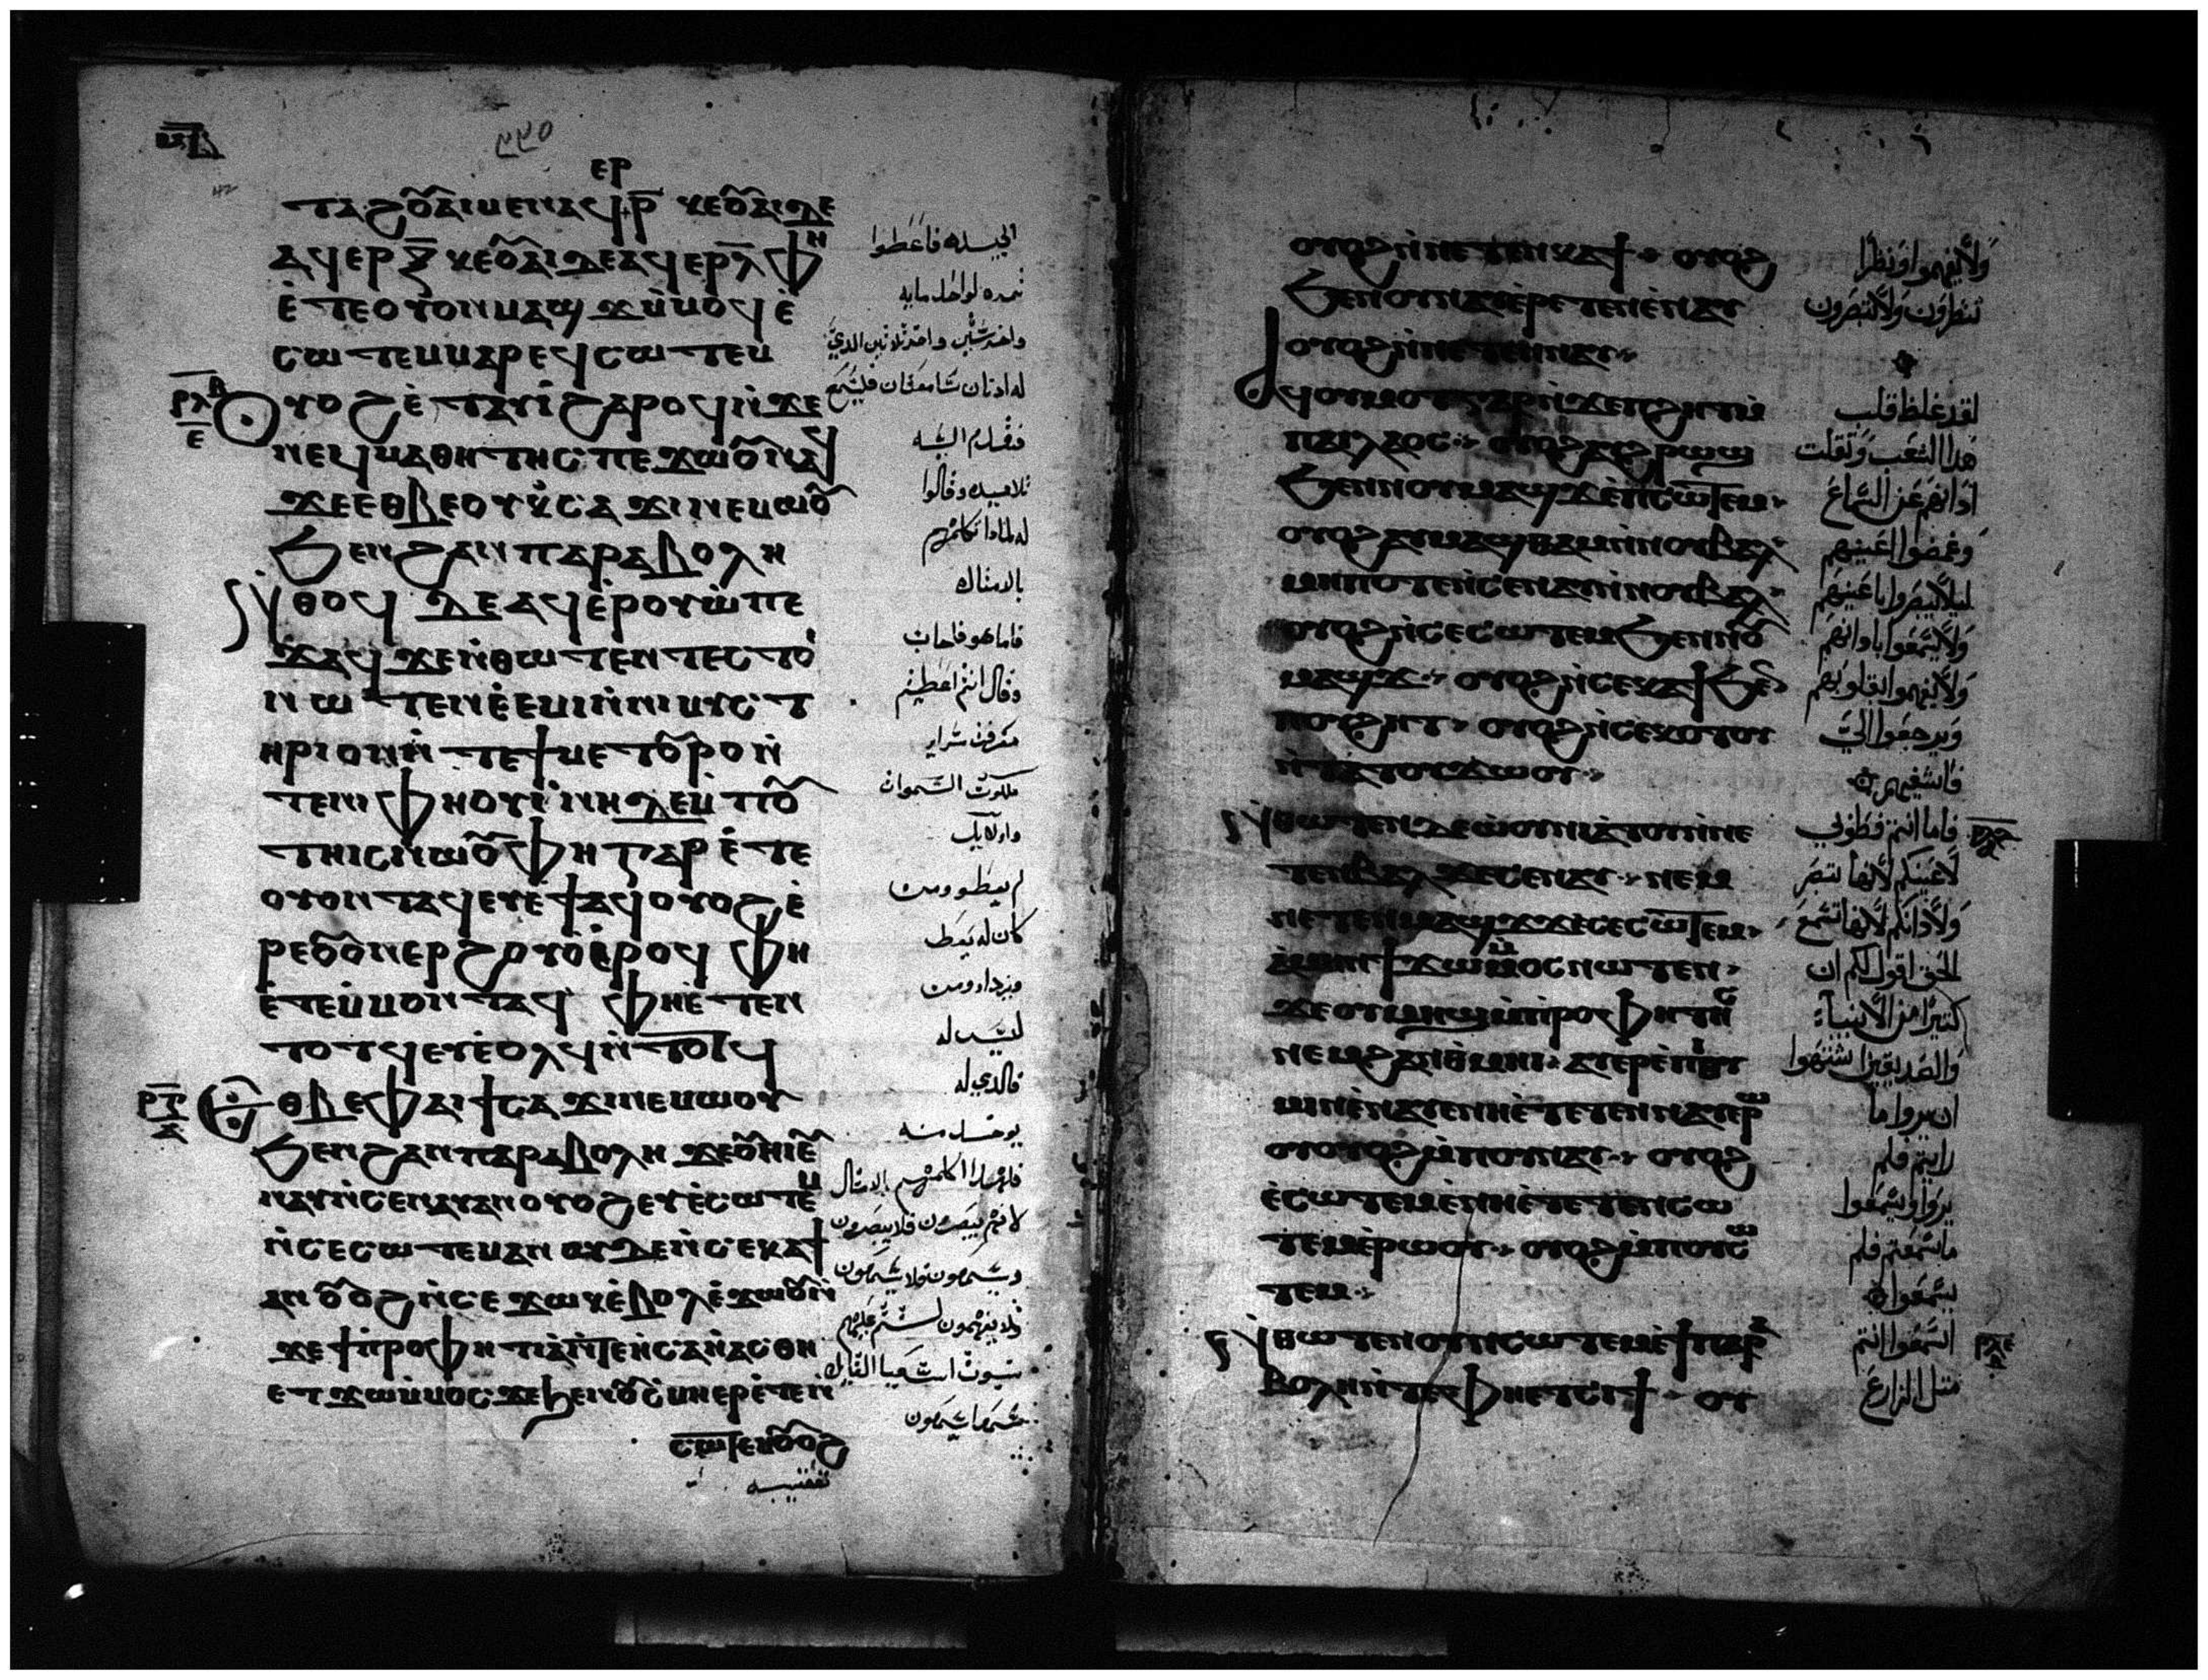 ⲉⲣ
ⲧⲁϩⲟ̅ⲁⲓ ⲙⲉⲛ ⲁϥⲣ̅ ⲕⲉⲟ̅ⲁⲓ ⲇⲉ
ⲁϥⲉⲣ ⲝ̅ ⲕⲉⲟ̅ⲁⲓ ⲇⲉ ⲁϥⲉⲣ ⲗ̅ ⲫⲏ
ⲉ̀ⲧⲉ ⲟⲩⲟⲛ ⲙⲁϣϫ ⲙ̀ⲙⲟϥ ⲉ̀
ⲥⲱⲧⲉⲙ ⲙⲁⲣⲉϥⲥⲱⲧⲉⲙ
ⲟⲩⲟϩ ⲉ̀ⲧⲁⲩⲓ̀ ϩⲁⲣⲟϥ ⲛ̀ϫⲉ
ⲛⲉϥⲙⲁⲑⲏⲧⲏⲥ ⲡⲉϫⲱⲟ̅ ⲛⲁϥ
ϫⲉ ⲉⲑⲃⲉⲟⲩ ⲕ̀ⲥⲁϫⲓ ⲛⲉⲙⲱⲟ̅
ϧⲉⲛ ϩⲁⲛⲡⲁⲣⲁⲃⲟⲗⲏ
ⲛ̀ⲑⲟϥ ⲇⲉ ⲁϥⲉ̀ⲣⲟⲩⲱ̀ ⲡⲉ
ϫⲁϥ ϫⲉ ⲛ̀ⲑⲱⲧⲉⲛ ⲡⲉⲥⲧⲟⲓ
ⲛⲱⲧⲉⲛ ⲉ̀ⲉⲙⲓ ⲉ̀ⲛⲓⲙⲩⲥⲧ
ⲏⲣⲓⲟⲛ ⲛ̀ⲧⲉ ϯⲙⲉⲧⲟ̅ⲣⲟ ⲛ̀
ⲧⲉ ⲛⲓⲫⲏⲟⲩⲓ̀ ⲛⲏ ⲇⲉ ⲙ̀ⲡⲟ̅
ⲧⲏⲓⲥ ⲛⲱⲟ̅ ⲫⲏ ⲅⲁⲣ ⲉ̀ⲧⲉ
ⲟⲩⲟⲛ ⲧⲁϥ ⲉⲩⲉ̀ϯ ⲛⲁϥ ⲟⲩⲟϩ ⲉ̀
ⲣⲉⲟⲩⲟⲛ ⲉⲣϩⲟⲩⲟ̀ ⲉ̀ⲣⲟϥ ⲫⲏ
ⲉ̀ⲧⲉⲙ̀ⲙⲟⲛ ⲧⲁϥ ⲫⲏ ⲉ̀ⲧⲉⲛ
ⲧⲟⲧϥ ⲉⲩⲉ̀ⲟⲗϥ ⲛ̀ⲧⲟⲧϥ
ⲉⲑⲃⲉ ⲫⲁⲓ ϯⲥⲁϫⲓ ⲛⲉⲙⲱⲟⲩ
ϧⲉⲛ ϩⲁⲛⲡⲁⲣⲁⲃⲟⲗⲏ ϫⲉ ⲟ̅ⲏⲓ ⲉⲩ
ⲛⲁⲩ ⲛ̀ⲥⲉⲛⲁⲩ ⲁⲛ ⲟⲩⲟϩ ⲉⲩⲉ̀ⲥⲱⲧⲉⲙ
ⲛ̀ⲥⲉⲥⲱⲧⲉⲙ ⲁⲛ ⲟⲩⲇⲉ ⲛ̀ⲥⲉⲕⲁϯ
ⲁⲛ ⲟ̅ⲟϩ ⲛ̀ⲥⲉϫⲱⲕ ⲉ̀ⲃⲟⲗ ⲉ̀ϫⲱⲟ̅ ⲛ̀
ϫⲉ ϯⲡ̀ⲣⲟⲫⲏⲧⲓⲁ ⲛ̀ⲧⲉ ⲏ̀ⲥⲁⲏ̀ⲁⲥ ⲑⲏ
ⲉⲧϫⲱ ⲙ̀ⲙⲟⲥ ϫⲉ ϧⲉⲛ ⲟ̅ⲥⲙⲏ ⲉⲣⲉ̀ⲧⲉⲛ
ⲥⲱⲧⲉⲙ ⲟ̅ⲟϩ
الجيده فاعطوا
ثمره لواحد مايه
واخر ستين واخر ثلاثين الذي
له ادنان سامعتان فليسمع
فتقدم اليه
تلاميده وقالوا
له لمادا تكلمهم
بالامثال
فاما هو فاجاب
وقال انتم اعطيتم
معرفة سراير
ملكوت السموات
واوليك
لم يعطوا ومن
كان له يعط
ويزداد ومن
ليس له
فالدي له
يوخد منه
فلهدا اكلمهم بالامثال
لانهم يبصرون فلا يبصرون
ويسمعون فلا يسمعون
ولا يفهمون لتتم عليهم
نبوة اشعيا القايل
سمعا يسمعون
ⲟⲩⲟϩ ⲛ̀ⲛⲉⲧⲉⲛⲕⲁϯ ⲟⲩⲟϩ
ϧⲉⲛ ⲟⲩⲛⲁⲩ ⲉ̀ⲣⲉⲧⲉⲛⲉ̀ⲛⲁⲩ
ⲟⲩⲟϩ ⲛ̀ⲛⲉⲧⲉⲛⲛⲁⲩ
ⲁϥⲟⲩⲙⲟⲧ ⲅⲁⲣ ⲛ̀ϫⲉ ⲡϩⲏⲧ ⲙ̀
ⲡⲁⲓⲗⲁⲟⲥ ⲟⲩⲟϩ ⲁϥϩⲣⲱϣ
ϧⲉⲛ ⲛⲟⲩⲙⲁϣϫ ⲉ̀ⲡⲥⲱⲧⲉⲙ
ⲟⲩⲟϩ ⲁⲩⲙⲁϣⲑⲁⲙ ⲛ̀ⲛⲟⲩⲃⲁⲗ
ⲙⲏⲡⲟⲧⲉ ⲛ̀ⲥⲉⲛⲁⲩ ⲛ̀ⲛⲟⲩⲃⲁⲗ
ⲟⲩⲟϩ ⲛ̀ⲥⲉⲥⲱⲧⲉⲙ ϧⲉⲛ ⲛⲟ̅
ⲙⲁϣϫ ⲟⲩⲟϩ ⲛ̀ⲥⲉⲕⲁϯ ϧⲉⲛ
ⲡⲟⲩϩⲏⲧ ⲟⲩⲟϩ ⲛ̀ⲥⲉⲕⲟⲧⲟⲩ
ⲛ̀ⲧⲁⲧⲟⲩϫⲱⲟⲩ
ⲛ̀ⲑⲱⲧⲉⲛ ⲇⲉ ⲱ̀ⲟⲩⲛⲓⲁ̀ⲧⲟⲩ ⲛ̀ⲛⲉ
ⲧⲉⲛⲃⲁⲗ ϫⲉ ⲥⲉⲛⲁⲩ ⲛⲉⲙ
ⲛⲉⲧⲉⲛⲙⲁϣϫ ϫⲉ ⲥⲉⲥⲱⲧⲉⲙ
ⲁ̀ⲙⲏⲛ ϯϫⲱ ⲙ̀ⲙⲟⲥ ⲛⲱⲧⲉⲛ
ϫⲉ ⲟⲩⲙⲏϣ ⲙ̀ⲡ̀ⲣⲟⲫⲏⲧⲏⲥ
ⲛⲉⲙ ϩⲁⲛⲑ̀ⲙⲏⲓ ⲁⲩⲉⲣⲉ̀ⲡⲓⲑⲩ
ⲙⲓⲛ ⲉ̀ⲛⲁⲩ ⲉ̀ⲛⲏ ⲉ̀ⲧⲉⲧⲉⲛⲛⲁⲩ ⲉ̀ⲣⲱ
ⲟⲩ ⲟⲩⲟϩ ⲙ̀ⲡⲟⲩⲛⲁⲩ ⲟⲩⲟϩ
ⲉ̀ⲥⲱⲧⲉⲙ ⲉ̀ⲛⲏ ⲉ̀ⲧⲉⲧⲉⲛⲥⲱ
ⲧⲉⲙ ⲉ̀ⲣⲱⲟⲩ ⲟⲩⲟϩ ⲙ̀ⲡⲟⲩⲥⲱ
ⲧⲉⲙ
ⲛ̀ⲑⲱⲧⲉⲛ ⲟⲩⲛ ⲥⲱⲧⲉⲙ ⲉ̀ϯⲡⲁⲣⲁ
ⲃⲟⲗⲏ ⲛ̀ⲧⲉ ⲫⲏ ⲉⲧⲥⲓϯ ⲟⲩ
ولا تفهموا ونظرا
تنظرون ولا تبصرون
لقد غلظ قلب
هدا الشعب وثقلت
ادانهم عن السماع
وغمضوا اعينهم
ليلا يبصروا باعينهم
ولا يسمعوا بادانهم
ولا يفهموا بقلوبهم
ويرجعوا الي
فاشفيهم
فاما انتم فطوبي
لاعينكم لانها تبصر
ولادانكم لانها تسمع
الحق اقول لكم ان
كثيرا من الانبياء
والصديقين اشتهوا
ان يروا ما
رايتم فلم
يروا ويسمعوا
ما سمعتم فلم
يسمعوا
اسمعوا انتم
مثل الزارع